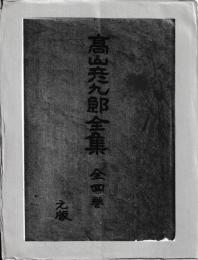 高山彦九郎全集
全四巻
元版